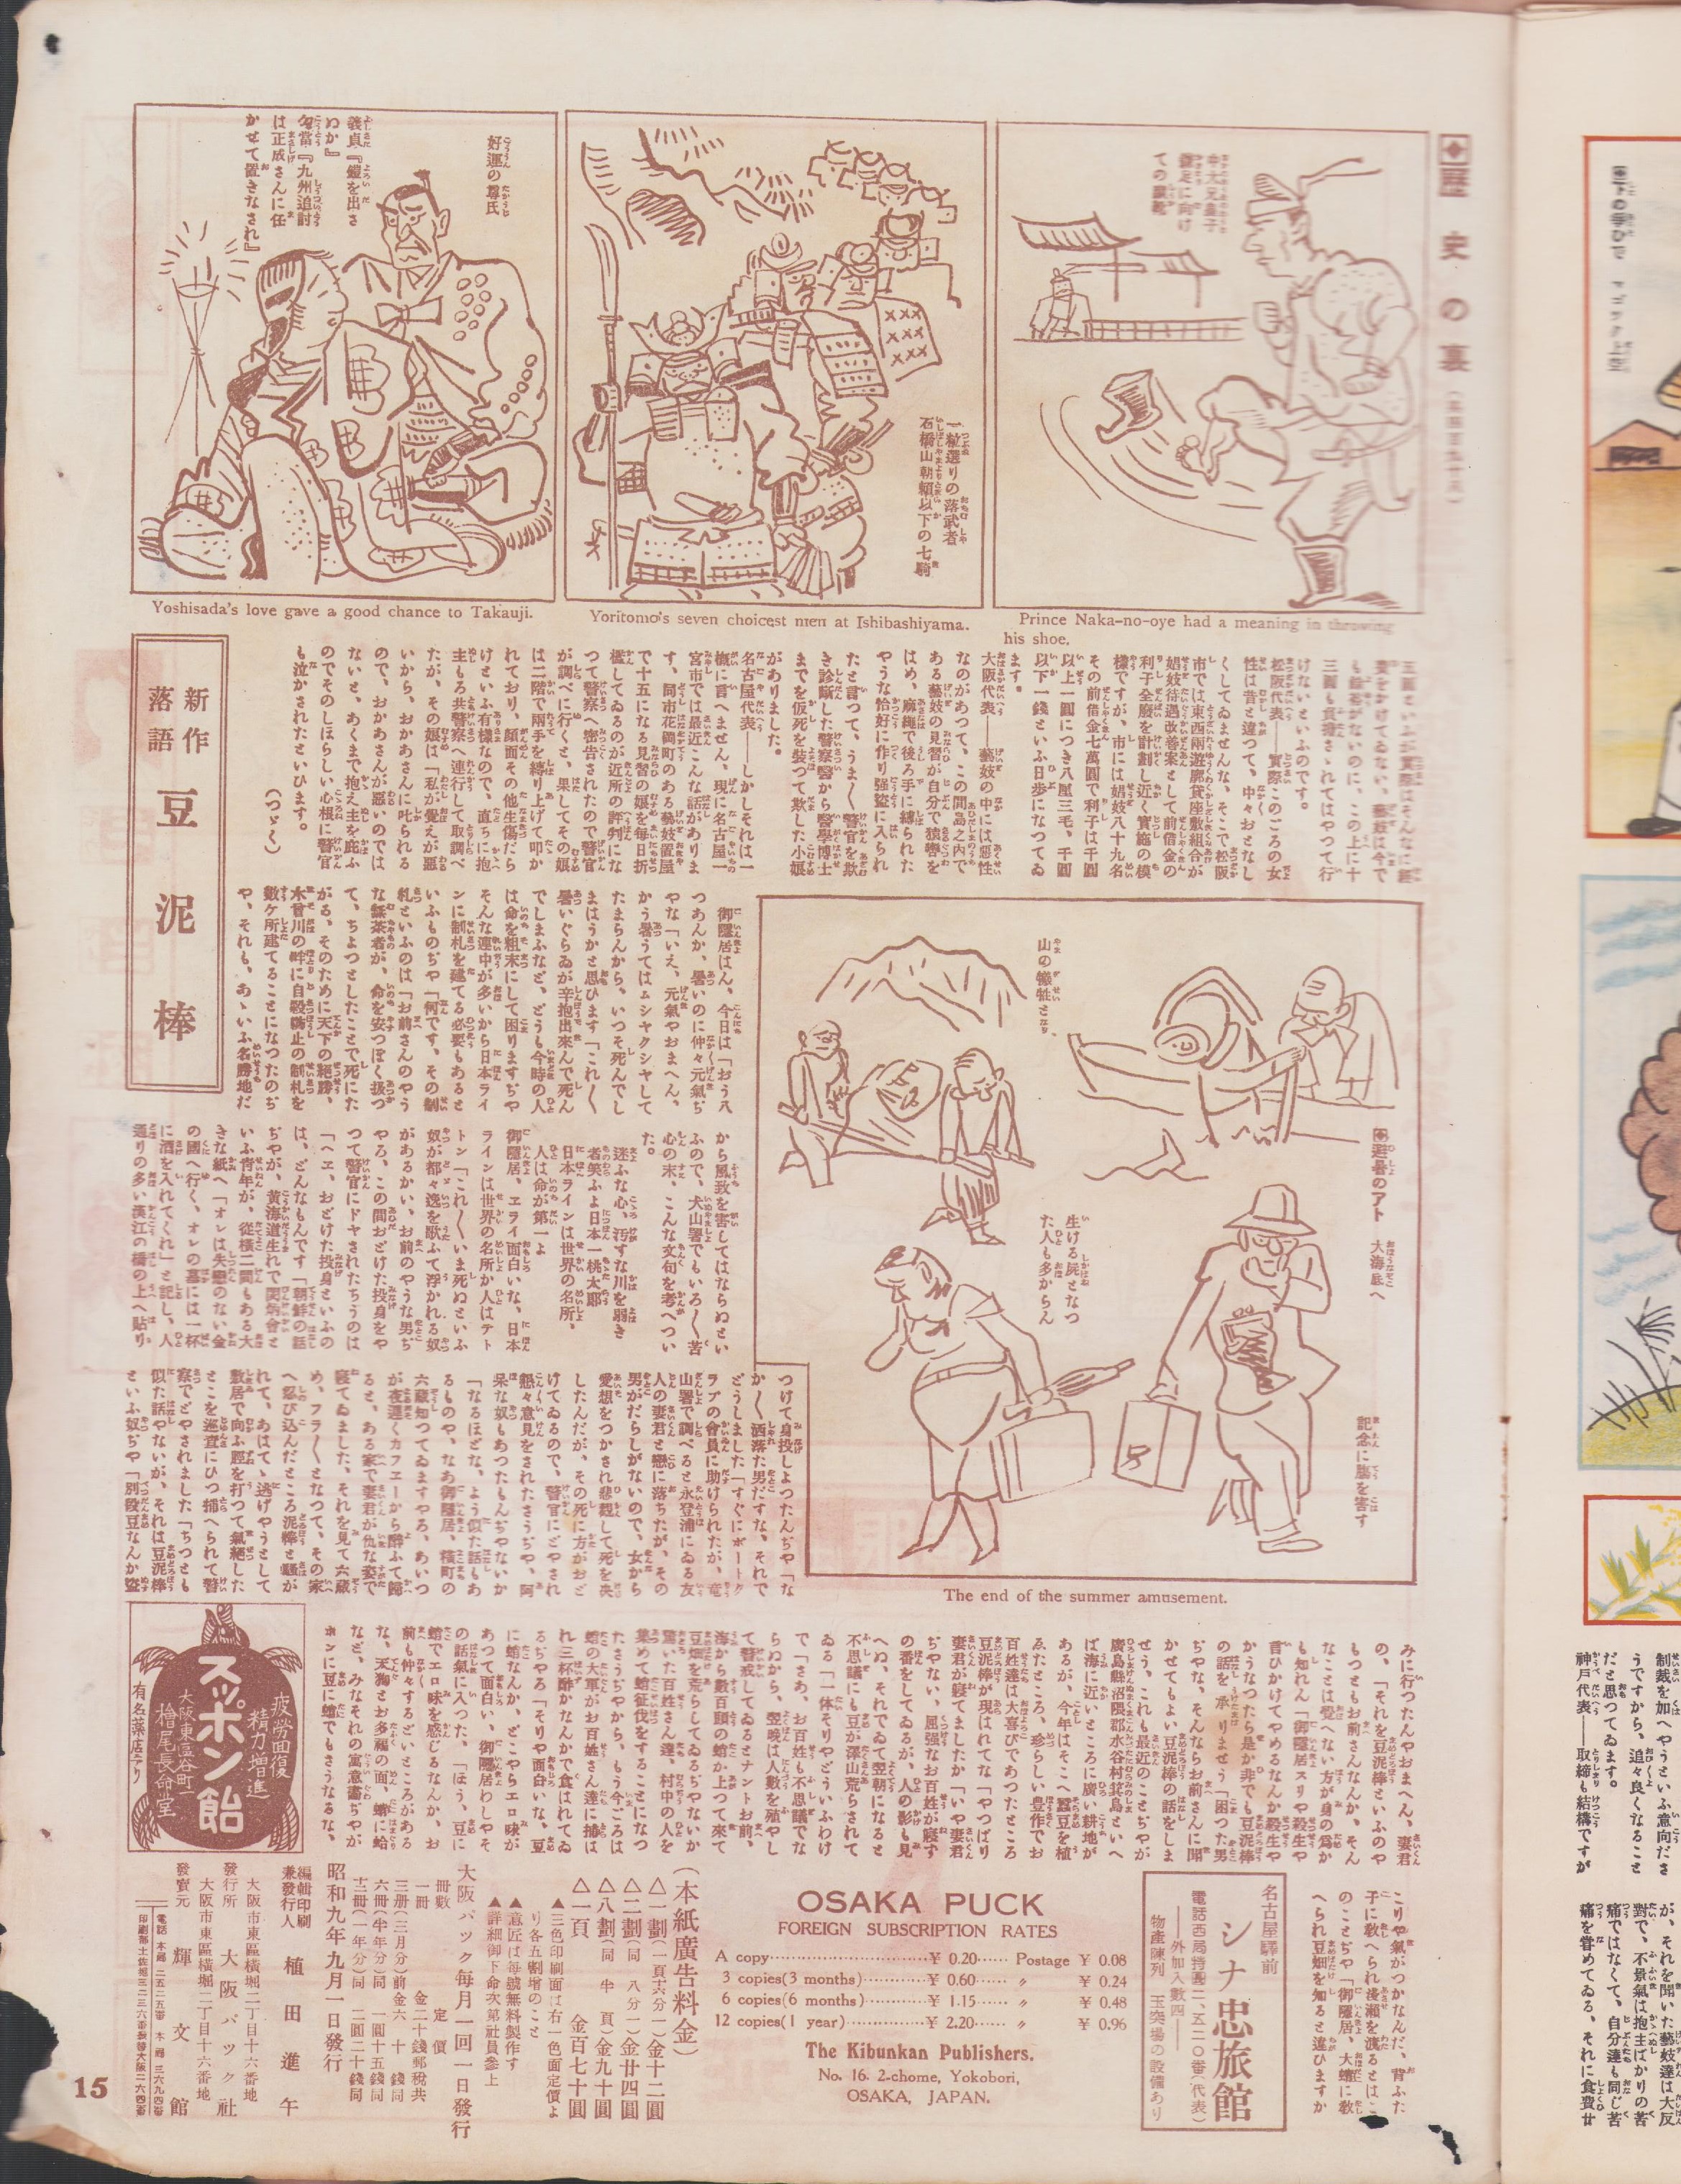 歴史の裏
中大兄皇子
鎌足に向け
ての蹴靴
Prince Naka-no-oye had a meaning in throwing
his shoe.
一粒選りの落武者
石橋山朝頼以下の七騎
Yoritomo's seven choicest men at Ishibashiyama.
好運の尊氏
義貞『鎧を出さ
ぬか』
勾當『九州追討
は正成さんに任
かせて置きなされ』
Yoshisada's love gave a good chance to Takauji.
けないといふのです。
松阪代表――實際このごろの女
性は昔と違つて、中々おとなし
くしてゐませんな、そこで松阪
市では東西兩遊廓貸座敷組合が
娼妓待遇改善案として前借金の
利子全廢を計劃し近く實施の模
様ですが、市には娼妓八十九名
その前借金七萬圓で利子は千圓
以上一圓につき八厘三毛、千圓
以下一錢といふ日歩になつてゐ
ます。
大阪代表――藝妓の中には惡性
なのがあつて、この間島之内で
ある藝妓の見習が自分で猿轡を
はめ、麻繩で後ろ手に縛られた
やうな恰好に作り强盜に入られ
たと言つて、うま〱警官を欺
き診斷した警察醫から醫學博士
までを仮死を裝つて欺した小娘
がありました。
名古屋代表――しかしそれは一
概に言へません、現に名古屋一
宮市では最近こんな話がありま
す、同市花岡町のある藝妓置屋
で十五になる見習の娘を毎日折
檻してゐるのが近所の評判にな
つて警察へ密告されたので警官
が調べに行くと、果してその娘
は二階で兩手を縛り上げて叩か
れており、顔面その他生傷だら
けといふ有様なので、直ちに抱
主もろ共警察へ連行して取調べ
たが、その娘は「私が覺えが惡
いから、おかあさんに叱られる
ので、おかあさんが惡いのでは
ないと、あくまで抱え主を庇ふ
のでそのしほらしい心根に警官
も泣かされたといひます。
（つゞく）
新作
落語
豆泥棒
御隱居はん、今日は「おう八
つあんか、暑いのに仲々元氣ぢ
やな「いえ、元氣やおまへん、
かう暑うてはムシャクシャして
たまらんから、いつそ死んでし
まはうかと思ひます「これ〱
暑いぐらゐが辛抱出來んで死ん
でしまふなど、どうも今時の人
は命を粗末にして困りますぢや
そんな連中が多いから日本ライ
ンに制札を建てる必要もあると
いふものぢや「何です、その制
札といふのは「お前さんのやう
な無茶者が、命を安つぽく扱つ
て、ちよつとしたことで死にた
がる、そのために天下の絶勝、
木曾川の畔に自殺防止の制札を
數ケ所建てることになつたのぢ
や、それも、あゝいふ名勝地だ
から風致を害してはならぬとい
ふので、犬山署でもいろ〱苦
心の末、こんな文句を考へつい
た。
迷ふな心、汚すな川を弱き
者笑ふよ日本一桃太郎
日本ラインは世界の名所、
人は命が第一よ
御隱居、エライ面白いな、日本
ラインは世界の名所か人はテト
トン「これ〱いま死ぬといふ
奴が都々逸を歌ふて浮かれる奴
があるかい、お前のやうな男ぢ
やろ、この間おどけた投身をや
つて警官にドヤされたちうのは
「へエ、おどけた投身といふの
は、どんなもんです「朝鮮の話
ぢやが、黄海道生れで
いふ青年が、從横二間もある大
きな紙へ「オレは失戀のない金
の國へ行く、オレの墓には一杯
に酒を入れてくれ」と記し、人
通りの多い漢江の橋の上へ貼り
つけて身投しよつたんぢや「な
か〱洒落た男だすな、それで
どうしました「すぐにボートク
ラブの會員に助けられたが、竜
山署で調べると永登浦にゐる友
人の妻君と戀に落ちたが、その
男がだらしがないので、女から
愛想をつかされ悲觀して死を決
したんだが、その死に方がおど
けてゐるので、警官にどやされ
懇々意見をされたさうぢや、阿
呆な奴もあつたもんぢやないか
「なるほどな、よう似た話もあ
るものや、なあ御隱居、橫町の
六藏知つてゐますやろ、あいつ
が夜遲くカフエーから醉ふて歸
ると、ある家で妻君が仇な姿で
寝てゐました、それを見て六藏
め、フラ〱となつて、その家
へ忍び込んだところ泥棒と騷が
れて、あはてゝ逃げやうとして
敷居で向ふ脛を打つて氣絶した
とこを巡査にひつ捕へられて警
察でどやされました「ちつとも
似た話やないが、それは豆泥棒
といふ奴ぢや「別段豆なんか盜
山の犠牲となり
避暑のアト
大海底へ
生ける屍となつ
た人も多からん
記念に腸を害す
The end of the summer amusement.
みに行つたんやおまへん、妻君
の、「それを豆泥棒といふのや
もつともお前さんなんか、そん
なことは覺へない方が身の爲か
も知れん「御隱居スリや殺生や
言ひかけてやめるなんか殺生や
かうなつたら是か非でも豆泥棒
の話を承りませう「困つた男
ぢやな、そんならお前さんに聞
かせてもよい豆泥棒の話をしま
せう、これも最近のことぢやが
廣島縣沼隈郡水谷村箕島といへ
ば海に近いところに廣い耕地が
あるが、今年はそこへ蠶豆を植
ゑたところ、珍らしい豊作でお
百姓達は大喜びであつたところ
豆泥棒が現はれてな「やつぱり
妻君が寝てましたか「いや妻君
ぢやない、屈强なお百姓が寢ず
の番をしてゐるが、人の影も見
へぬ、それでゐて翌朝になると
不思議にも豆が澤山荒らされて
ゐる「一体そりやどういふわけ
で「さあ、お百姓も不思議でな
らぬから、翌晩は人數を殖やし
て警戒してゐるとナントお前、
海から數百頭の蛸が上つて來て
豆畑を荒らしてゐるぢやないか
驚いた百姓さん達、村中の人を
集めて蛸征伐をすることになつ
たさうぢやから、もう今ごろは
蛸の大軍がお百姓さん達に捕は
れ三杯酢かなんかで食はれてゐ
るぢやろ「そりや面白いな、豆
に蛸なんか、どこやらエロ味が
あつて面白い、御隱居わしやそ
の話氣に入つた、「ほう、豆に
蛸でエロ味を感じるなんか、お
前も仲々するどいところがある
な、天狗とお多福の面、蛸に蛤
など、みなそれの寓意畵ぢやが
ホンに豆に蛸でもさうなるな、
こりや氣がつかなんだ、背ふた
子に敎へられ淺瀬を渡るとはこ
のことぢや「御隱居、大蛸に敎
へられ豆畑を知ると違ひますか
疲勞回復
精力增進
スッポン飴
大阪東區谷町一
檜尾長命堂
有名藥店ニアリ
名古屋驛前
シナ忠旅館
電話西局　　二、五二〇番（代表）
――外加入數四――
物產陳列　玉突場の設備あり
OSAKA PUCK
FOREIGN SUBSCRIPTION RATES
A copy ¥ 0.20 Postage ¥ 0.08
3 copies(3 months) ¥ 0.60 〃 ¥ 0.24
6 copies(6 months) ¥ 1.15 〃 ¥ 0.48
12 copies(1 year) ¥ 2.20 〃 ¥ 0.96
The Kibunkan Publishers.
No. 16. 2-chome, Yokobori,
OSAKA, JAPAN.
（本紙廣告料金）
△一劃（一頁六分一）金十二圓
△二劃（同　八分一）金廿四圓
△八劃（同　半　頁）金九十圓
△一頁　金百七十圓
▲三色印刷面は右一色面定價よ
り各五割增のこと
▲意匠は每號無料製作す
▲詳細御下命次第社員參上
大阪パック每月一回一日發行
冊數　定價
一冊　金二十錢郵稅共
三册（三月分）前金六十錢同
六冊（半年分）同　一圓十五錢同
十二冊（一年分）同　二圓二十錢同
昭和九年九月一日發行
編輯印刷
兼發行人　植田進午
大阪市東區橫堀二丁目十六番地
發行所　大阪パック社
大阪市東區橫堀二丁目十六番地
發賣元　輝文館
15
制裁を加へやうといふ意向ださ
うですから、追々良くなること
だと思つてゐます。
神戸代表――取締も結構ですが
が、それを聞いた藝妓達は大反
對で、不景氣は抱主ばかりの苦
痛ではなくて、自分達も同じ苦
痛を嘗めてゐる、それに食費廿